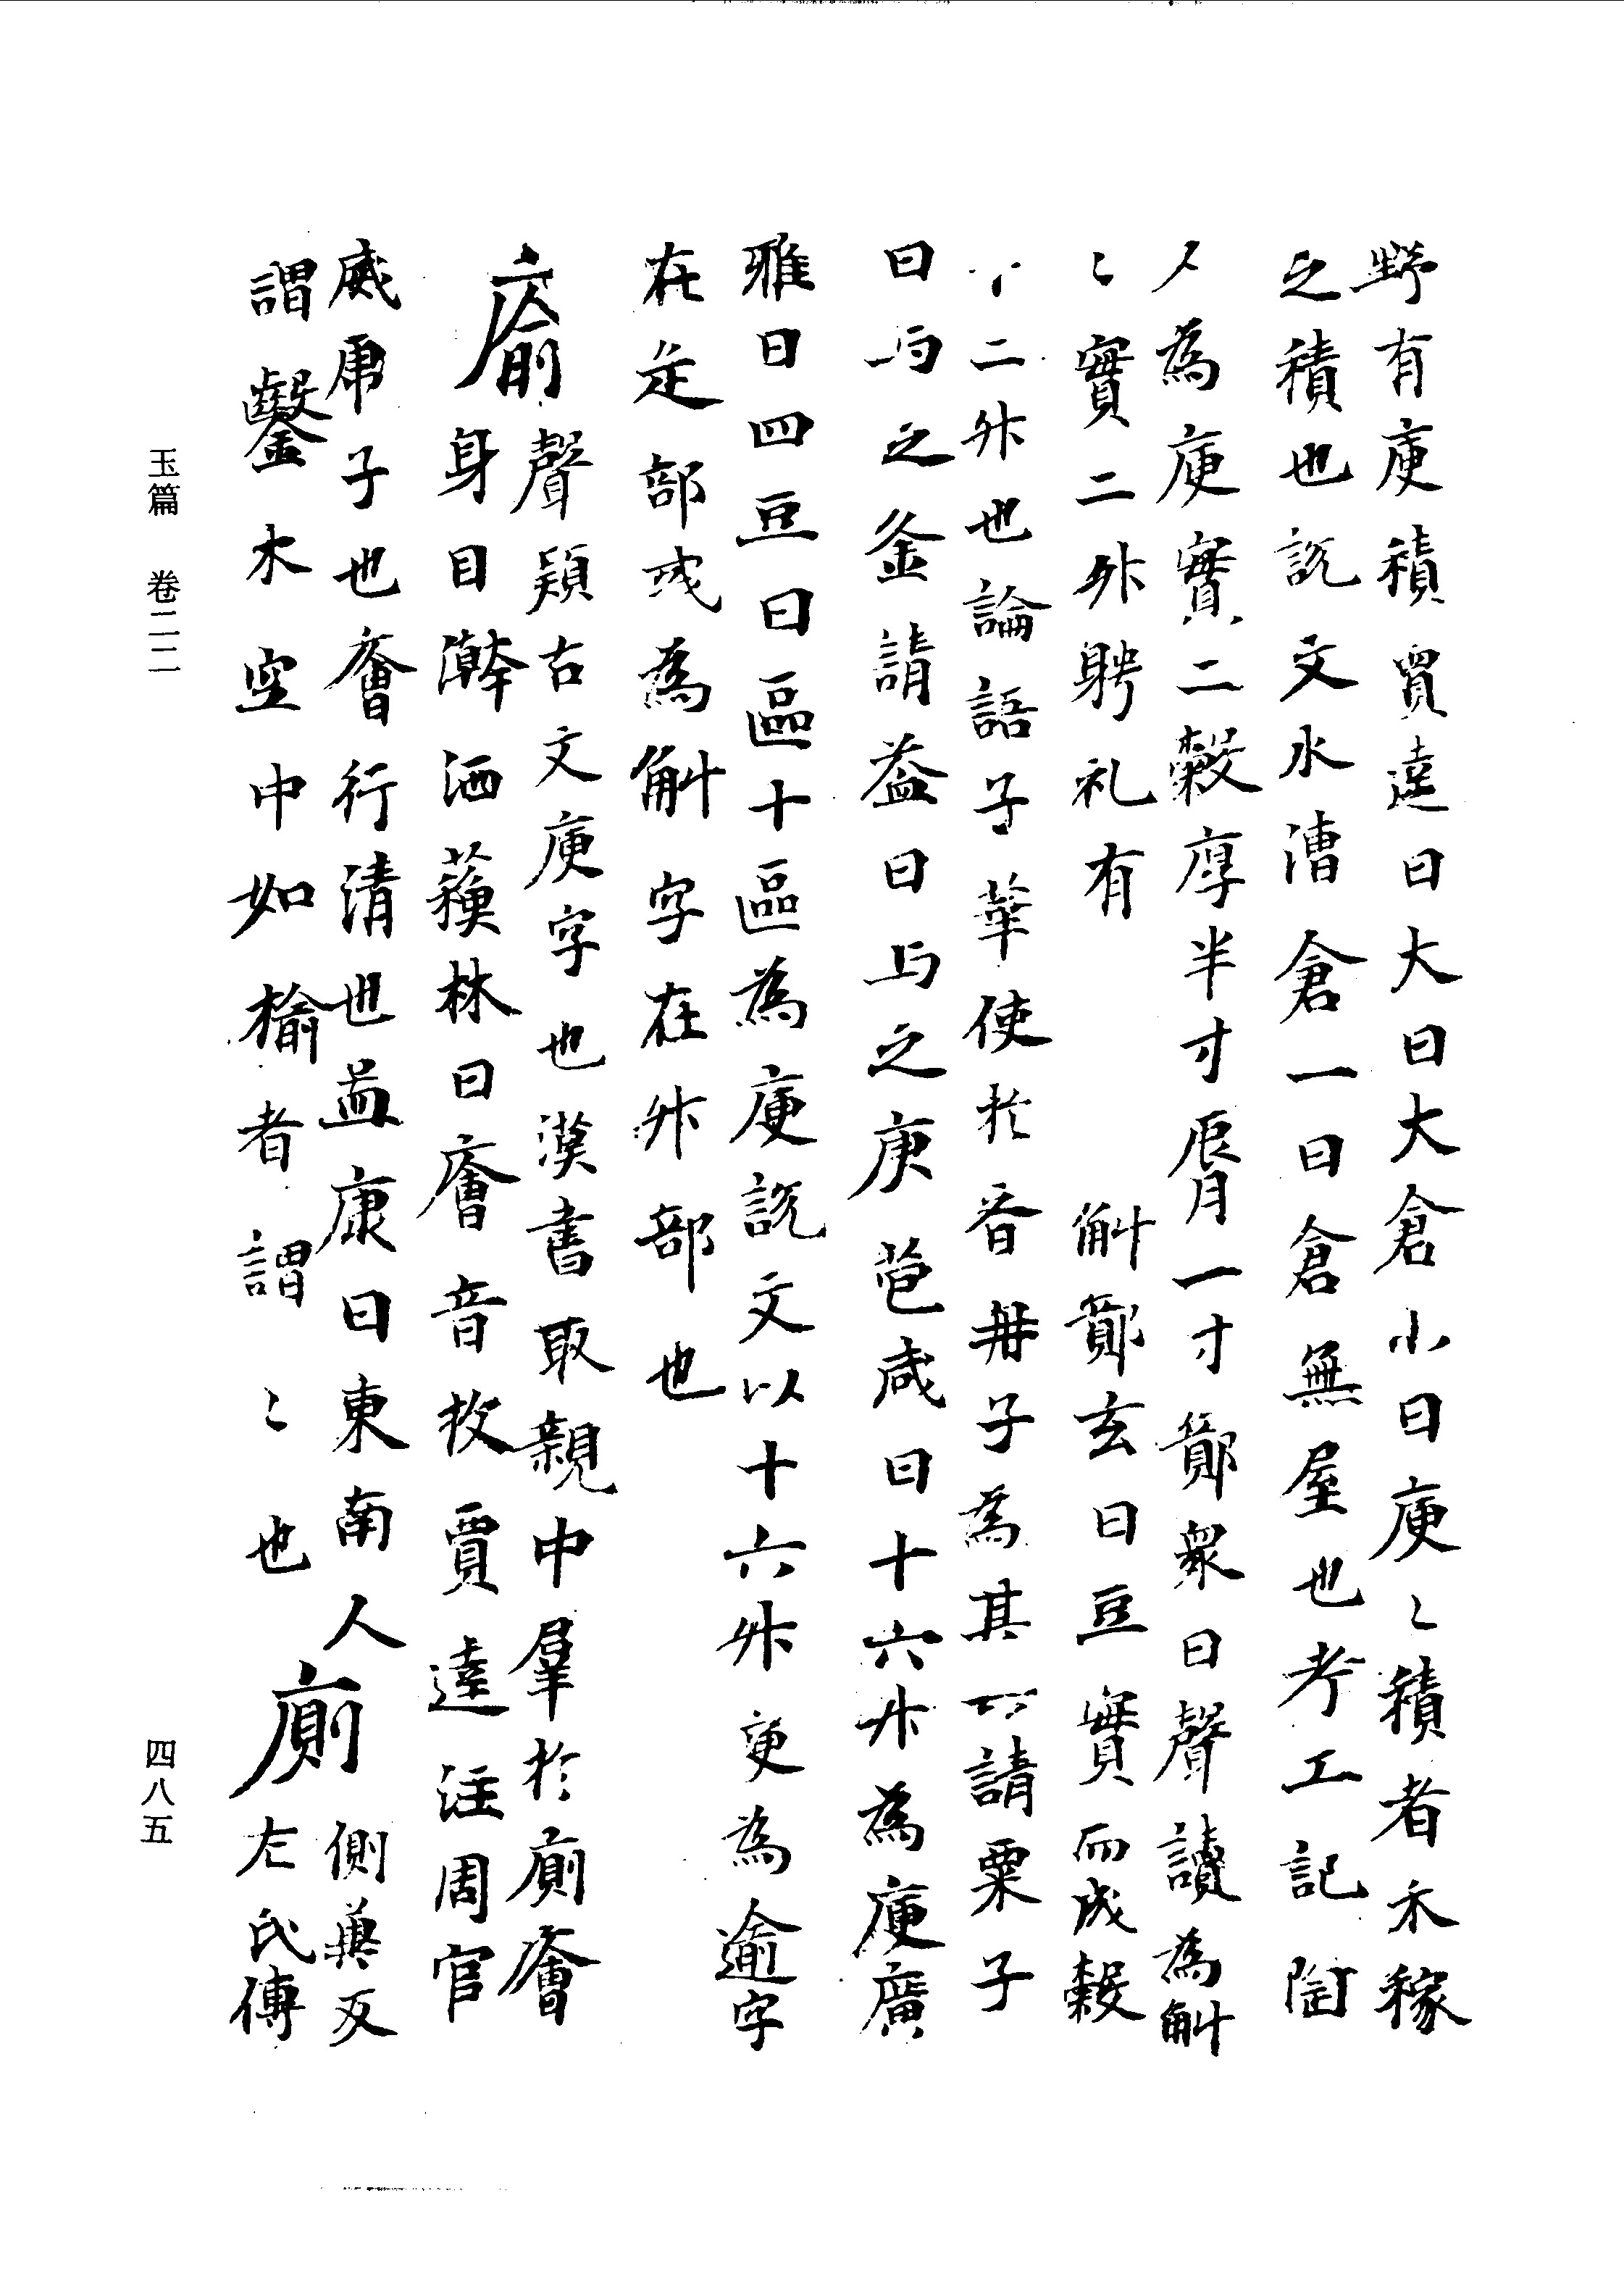 野有庾積賈逵曰大曰大倉小曰庾〻積者禾稼
之積也說文水漕倉一曰倉無屋也考工記陶
人為庾實二㲄厚半寸脣一寸鄭衆曰聲讀為㪷
〻實二升聘礼有㪷鄭玄曰豆實而成㲄
二升也論語子華使於晉冊子為其請粟子
曰与之釜請益曰与之庾苞咸曰十六升為庾廣
雅曰四豆曰區十區為庾說文以十六升更為逾字
在辵部或為㪷字在升部也
廥聲穎古文庾字也漢書取親中羣於廁廥
身自澣洒蘇林曰廥音投賈逵注周官
威虎子也廥行清也孟康曰東南人
謂鑿木空中如楡者謂〻也
廁側異反
左氏傳
玉篇 卷二二
四八五